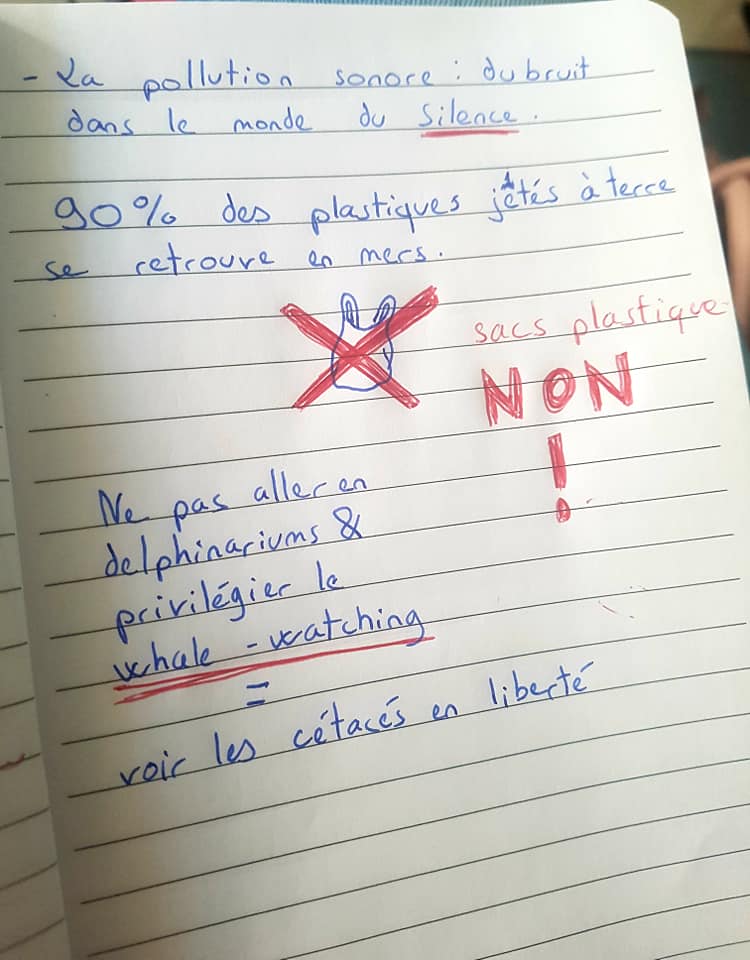 - La pollution sonore : du bruit
dans le monde du silence.
90% des plastiques jetés à terre
se retrouve en mers.
sacs plastique
NON
!
Ne pas aller en
delphinariums &
privilégier le
whale-watching
=
voir les cétacés en liberté